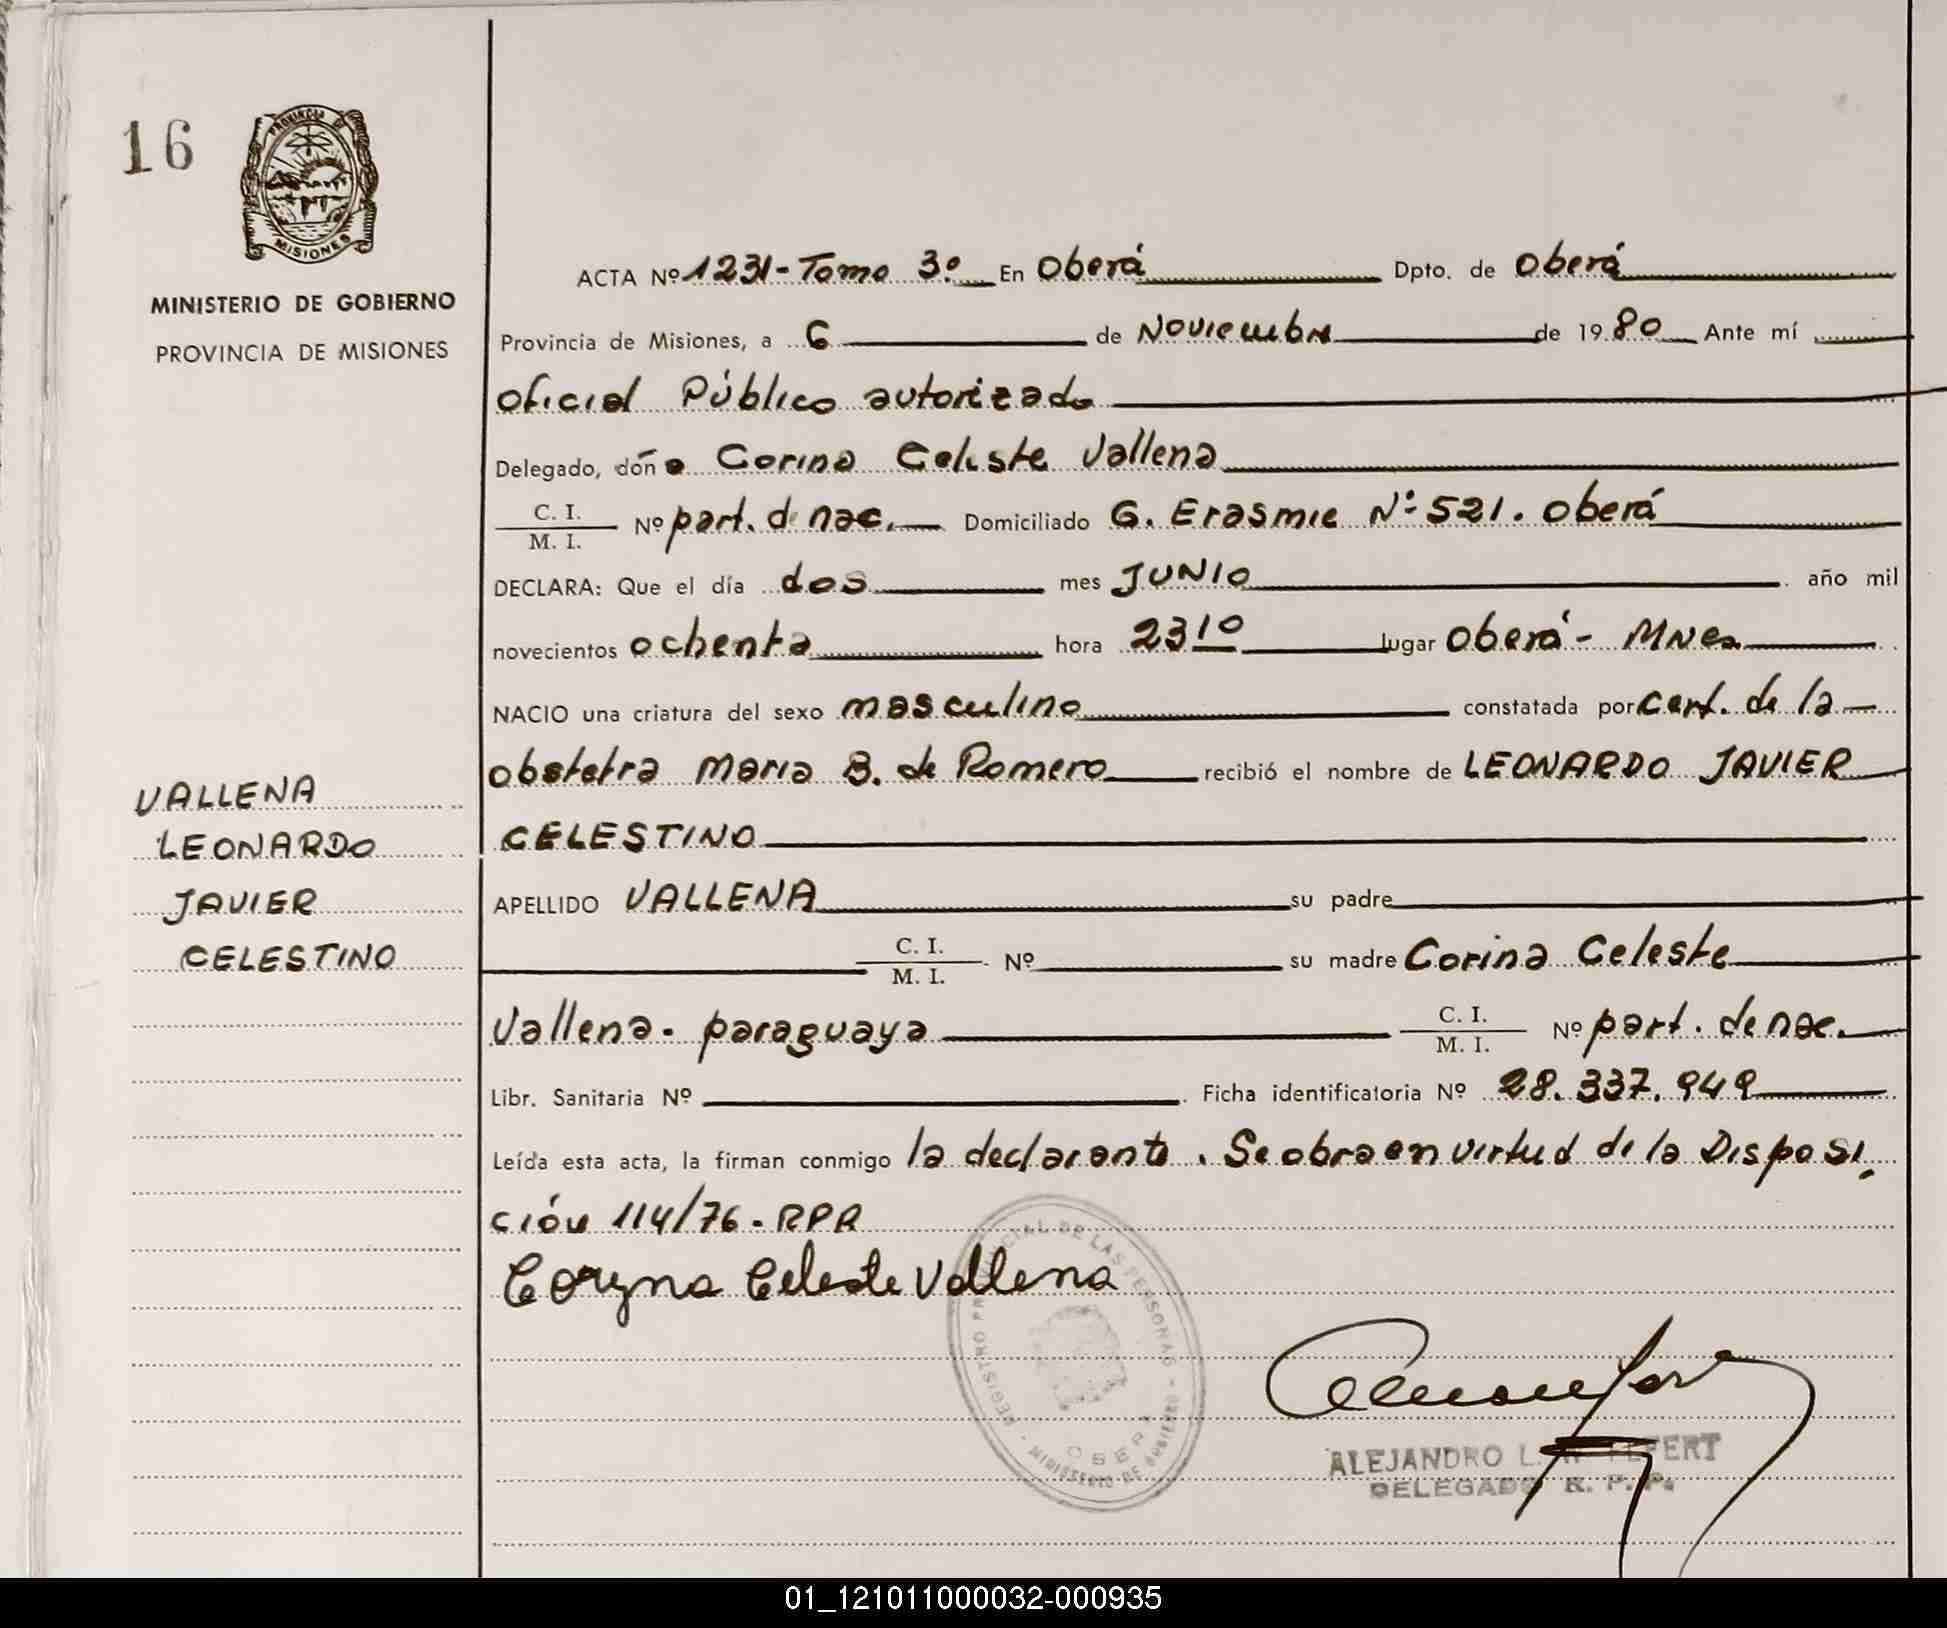 16
PROVINCIA DE
MISIONES
MINISTERIO DE GOBIERNO
PROVINCIA DE MISIONES
ACTA Nº 1231-Tomo 3º En Oberá Dpto. de Oberá
Provincia de Misiones, a 6 de Noviembre de 1980 Ante mí
Oficial Público autorizado
Delegado, doña Corina Celeste Vallena
C. I.
M. I. Nº part. de nac. Domiciliado G. Erasmie Nº 521. Oberá
DECLARA: Que el día dos mes JUNIO año mil
novecientos ochenta hora 23 10 lugar Oberá - MNES
NACIO una criatura del sexo masculino constatada por cert. de la
obstetra Maria B. de Romero recibió el nombre de LEONARDO JAVIER
CELESTINO
VALLENA
LEONARDO
JAVIER
CELESTINO
APELLIDO VALLENA su padre
C. I.
M. I. Nº su madre Corina Celeste
Vallena - paraguaya C. I.
M. I. Nº part. de nac.
Libr. Sanitaria Nº Ficha identificatoria Nº 28.337.949
Leída esta acta, la firman conmigo la declarante. Se obra en virtud de la Disposi
ción 114/76 - RPP
Coryna Celeste Vallena
REGISTRO PROVINCIAL DE LAS PERSONAS - MINISTERIO DE GOBIERNO -
OBERA
ALEJANDRO L.
DELEGADO R. P. P.
01_121011000032-000935